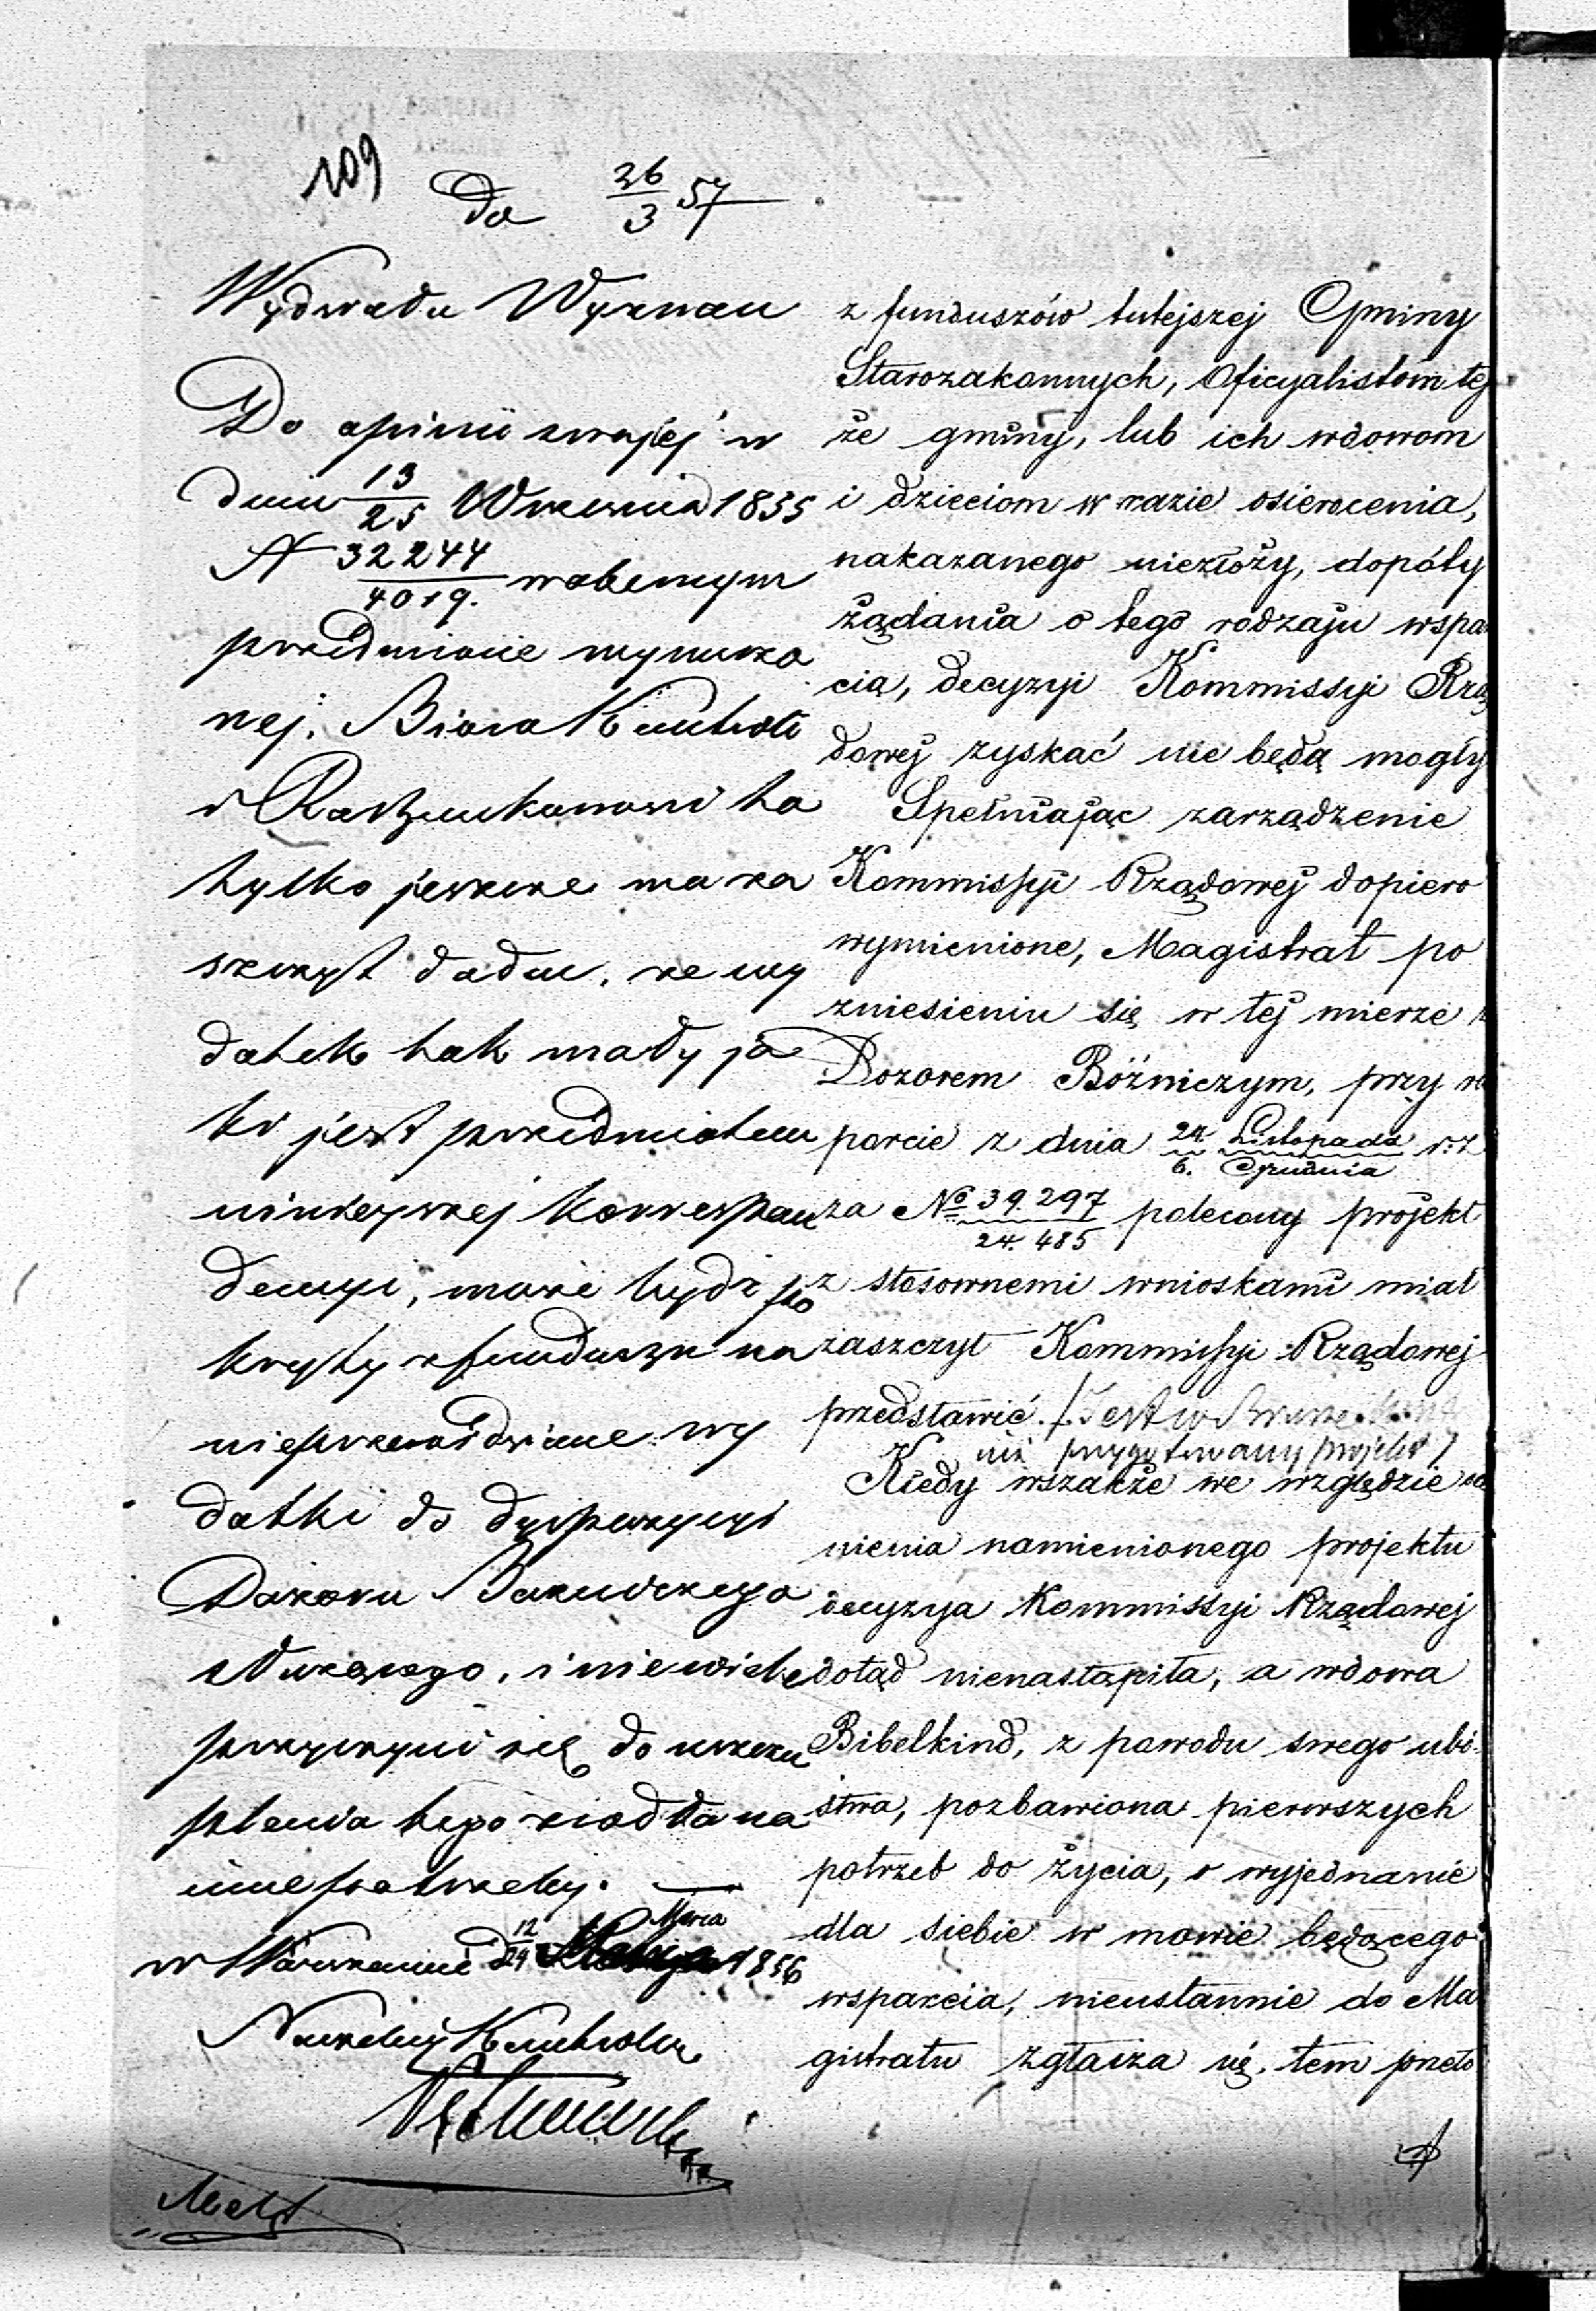 109
Do 26/3 57
Wydziału Wyznań
Do opinii swojej w
dniu 13/25 Września 1855
N 32244/4019. w obecnym
przedmiocie wynurzo
nej, Bióro Kontroli
i Rachunkowości to
tylko jeszcze ma za
szczyt dodać, że wy
datek tak mały ja
ki jest przedmiotem
niniejszej korrespon
dencyi, może bydź po
kryty z funduszu na
nieprzewidziane wy
datki do dyspozycyi
Dozoru Bożniczego
służącego, i nie wiele
przyczyni się do uszczu
plenia tego źródła na
inne potrzeby.
w Warszawie d 12/24 Marca 1856
Naczelnik Kontroli
z funduszów tutejszej Gminy
Starozakonnych, Oficyalistom tej
że gminy, lub ich wdowom
i dzieciom w razie osierocenia,
nakazanego niezłoży, dopóty
żądania o tego rodzaju wspar
cia, decyzyi Kommissyi Rzą
dowej zyskać nie będą mogły
Spełniając zarządzenie
Kommissyi Rządowej dopiero
wymienione, Magistrat po
zniesieniu się w tej mierze z
Dozorem Bóżniczym, przy ra
porcie z dnia 24. Listopada/6. Grudnia r. z
za No 39.297/24.485 polecony projekt
z stosownemi wnioskami miał
zaszczyt Kommissyi Rządowej
przedstawić. /Jest w
nie przygotowany projekt/
Kiedy wszakże we względzie oce
nienia namienionego projektu
decyzya Kommissyi Rządowej
dotąd nienastąpiła, a wdowa
Bibelkind, z powodu swego ubó
stwa, pozbawiona pierwszych
potrzeb do życia, o wyjednanie
dla siebie w mowie będącego
wsparcia, nieustannie do Ma
gistratu zgłasza się, tem przeto